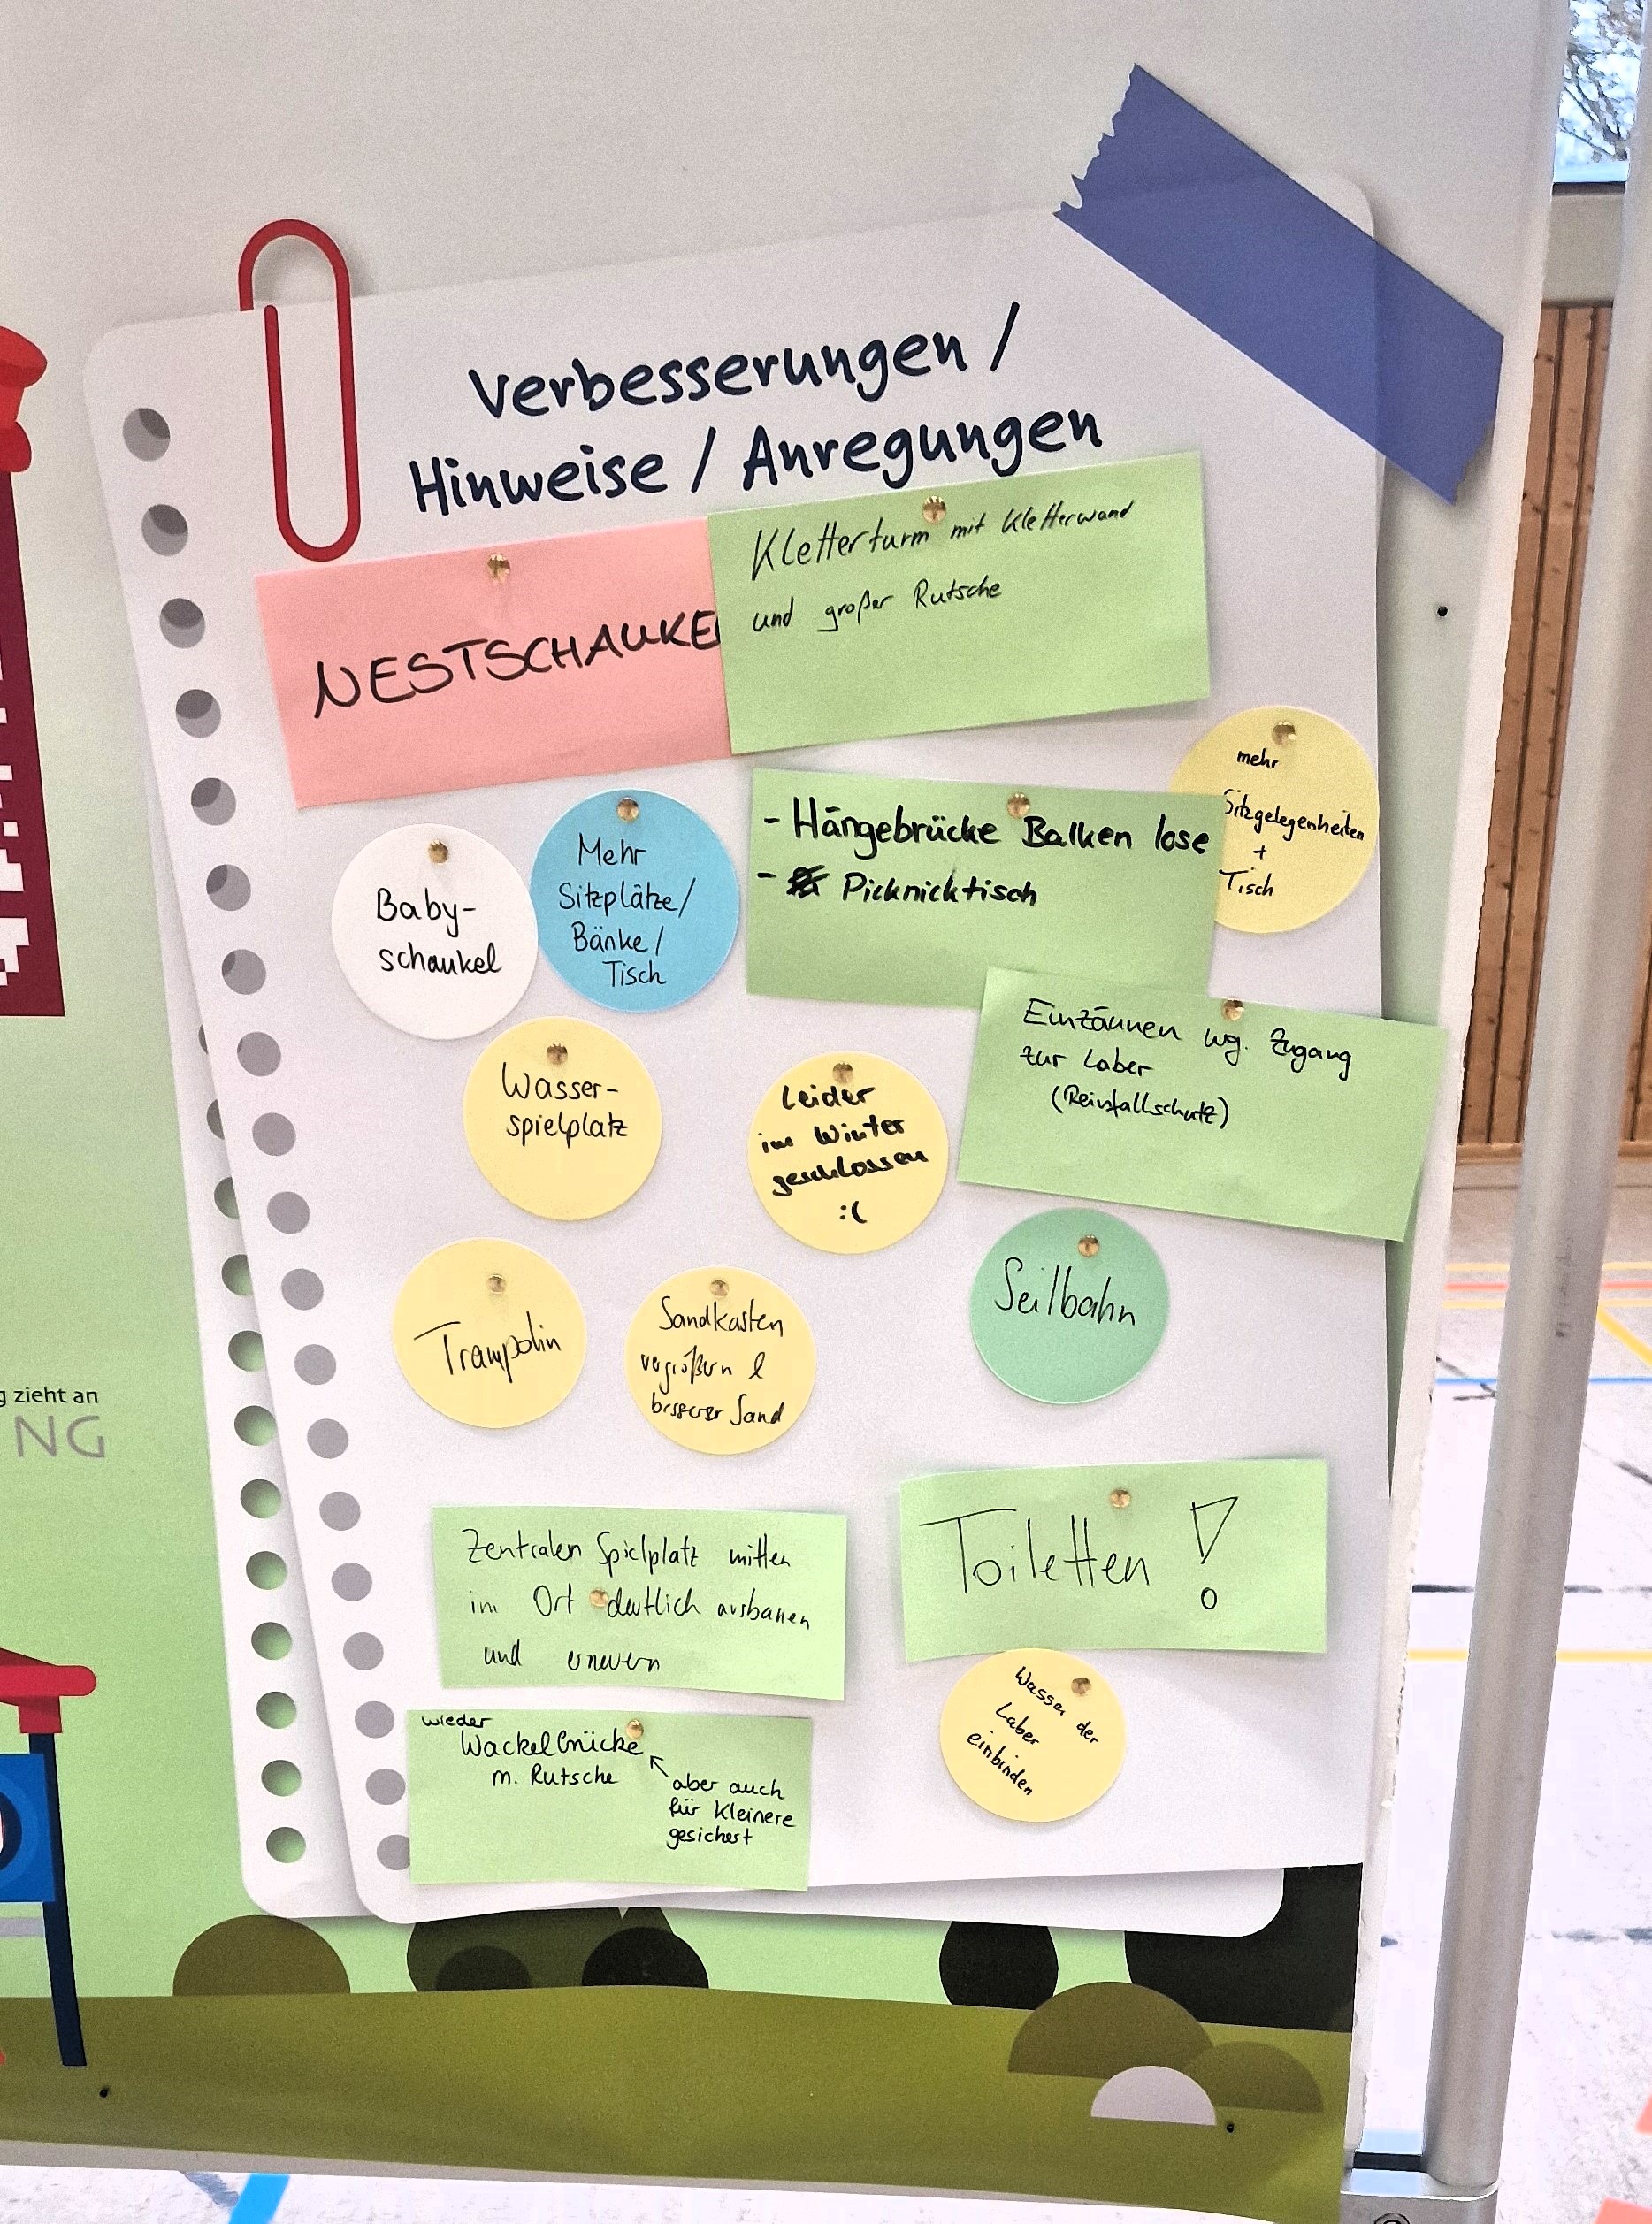 Verbesserungen /
Hinweise / Anregungen
NESTSCHAUKE
Kletterturm mit Kletterwand
und großer Rutsche
mehr
Sitzgelegenheiten
+
Tisch
Baby-
schaukel
Mehr
Sitzplätze/
Bänke/
Tisch
- Hängebrücke Balken lose
- Picknicktisch
Einzäunen wg. Zugang
zur Laber
(Reinfallschutz)
Wasser-
spielplatz
Leider
im Winter
geschlossen
:(
Trampolin
Sandkasten
vergrößern &
besserer Sand
Seilbahn
Zentralen Spielplatz mitten
im Ort deutlich ausbauen
und erneuern
Toiletten !
wieder
Wackelbrücke
m. Rutsche
aber auch
für Kleinere
gesichert
Wasser der
Laber
einbinden
g zieht an
NG